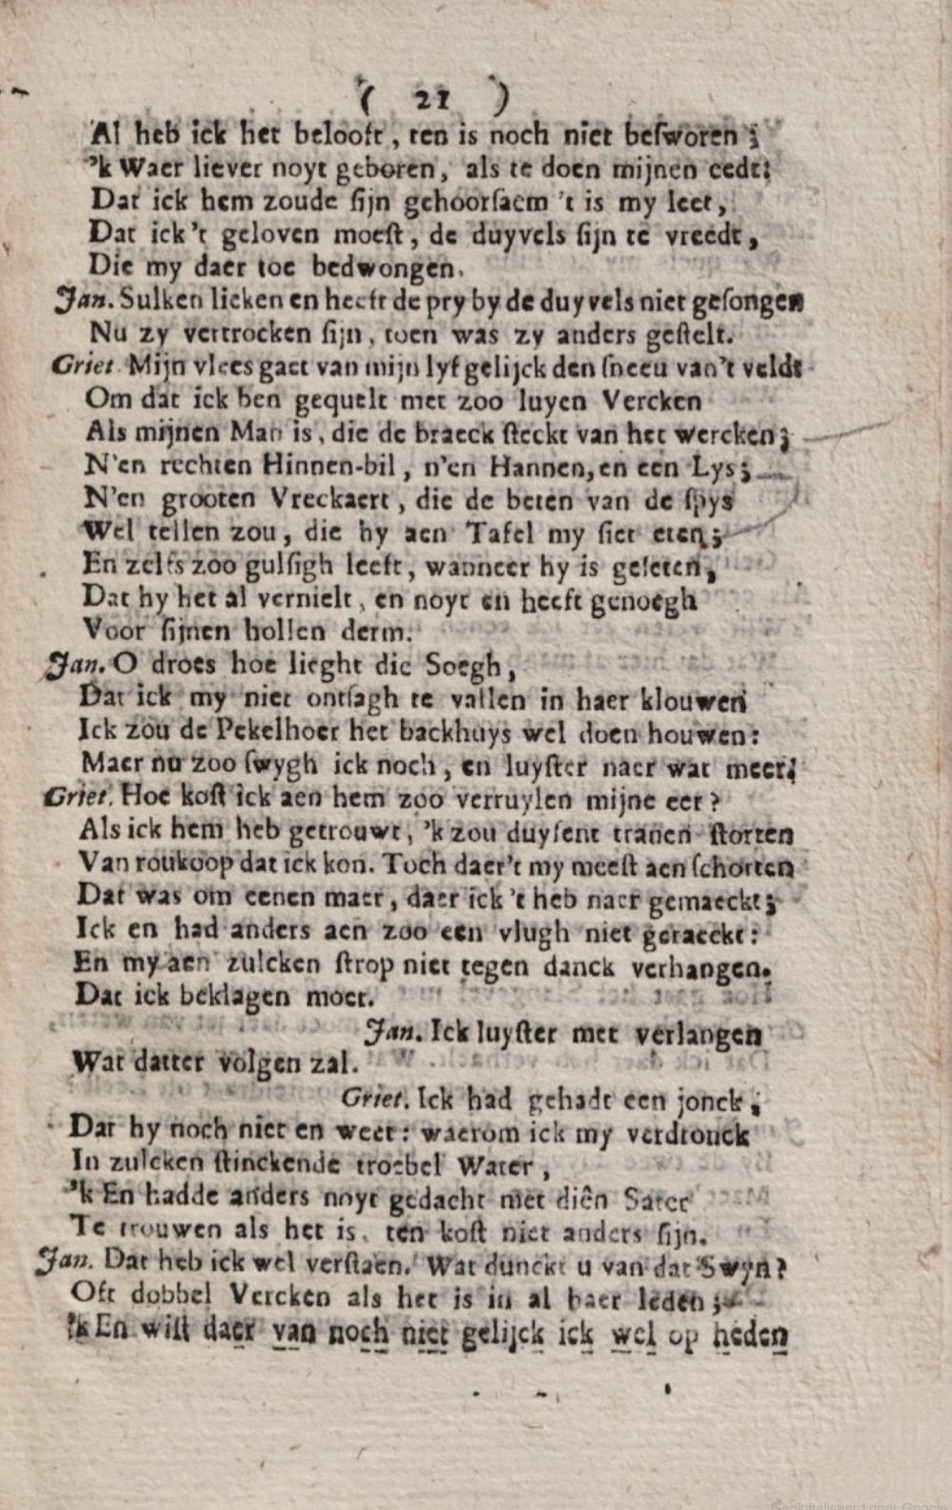 ( 21 )
Al heb ick het belooft, ten is noch niet beſworen;
'k Waer liever noyt geboren, als te doen mijnen eedt:
Dat ick hem zoude ſijn gehoorſaem 't is my leet,
Dat ick 't geloven moeſt, de duyvels ſijn te vreedt,
Die my daer toe bedwongen.
Jan. Sulken lieken en heeft de pry by de duyvels niet geſongen
Nu zy vertrocken ſijn, toen was zy anders geſtelt.
Griet Mijn vlees gaet van mijn lyf gelijck den ſneeu van't veldt
Om dat ick ben gequelt met zoo luyen Vercken
Als mijnen Man is, die de braeck ſteckt van het wercken;
N'en rechten Hinnen-bil, n'en Hannen, en een Lys;
N'en grooten Vreckaert, die de beten van de ſpys
Wel tellen zou, die hy aen Tafel my ſiet eten;
En zelfs zoo gulſigh leeft, wanneer hy is geſeten,
Dat hy het al vernielt, en noyt en heeft genoegh
Voor ſijnen hollen derm.
Jan. O droes hoe lieght die Soegh,
Dat ick my niet ontſagh te vallen in haer klouwen
Ick zou de Pekelhoer het backhuys wel doen houwen:
Maer nu zoo ſwygh ick noch, en luyſter naer wat meer;
Griet. Hoe koſt ick aen hem zoo verruylen mijne eer?
Als ick hem heb getrouwt, 'k zou duyſent tranen storten
Van roukoop dat ick kon. Toch daer't my meeſt aen ſchorten
Dat was om eenen maer, daer ick 't heb naer gemaeckt;
Ick en had anders aen zoo een vlugh niet geraeckt:
En my aen zulcken ſtrop niet tegen danck verhangen.
Dat ick beklagen moet.
Jan. Ick luyſter met verlangen
Wat datter volgen zal.
Griet. Ick had gehadt een jonck,
Dat hy noch niet en weet: waerom ick my verdronck
In zulcken ſtinckende troebel Water,
'k En hadde anders noyt gedacht met diên Sater
Te trouwen als het is, ten koſt niet anders ſijn.
Jan. Dat heb ick wel verſtaen. Wat dunckt u van dat Swyn?
Oft dobbel Vercken als het is in al haer leden;
'k En will daer van noch niet gelijck ick wel op heden